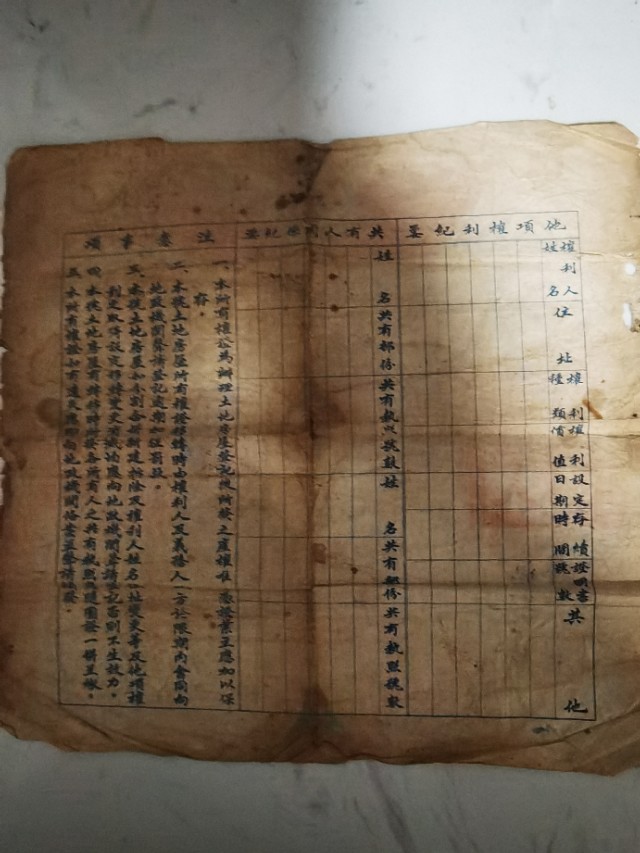 他項權利紀要
權利人姓名
住址
權利種類
權利價值
設定日期
存續時間
證明書號數
其他
共有人關係紀要
姓名
共有部份
共有執照號數
姓名
共有部份
共有執照號數
注意事項
一、本所有權證為辦理土地房屋登記後所發之產權唯一憑證業主應如以保
存。
二、本號土地房屋所有權移轉時由權利人及義務人一方於限期內會同向
地政機關聲請登記逾期一並罰鍰。
三、本號土地房屋如分割合併新建拆除及權利人姓名住址變更等及他項權
利之取得設定移轉變更消滅均應向地政機關聲請登記否則不生效力。
四、本號土地房屋有移轉時所發各所有人之共有執照應隨同證一併呈繳。
五、本所有權證如有遺失應即向地政機關掛案並聲請補發。